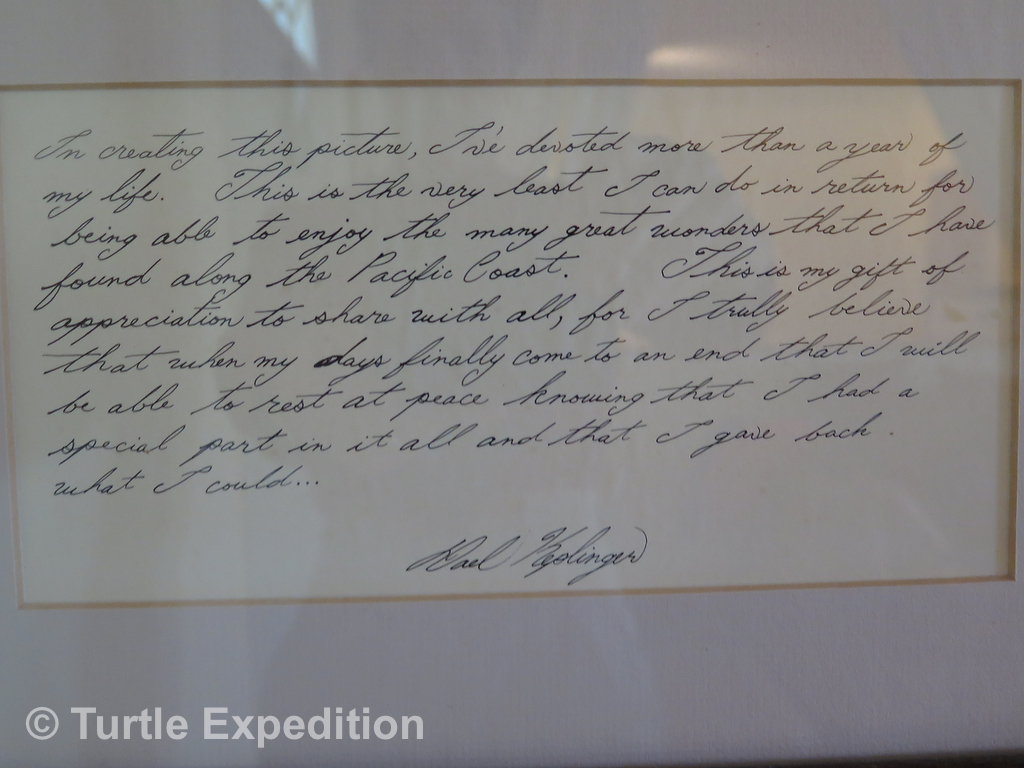 In creating this picture, I've devoted more than a year of
my life. This is the very least I can do in return for
being able to enjoy the many great wonders that I have
found along the Pacific Coast. This is my gift of
appreciation to share with all, for I trully believe
that when my days finally come to an end that I will
be able to rest at peace knowing that I had a
special part in it all and that I gave back
what I could...
© Turtle Expedition